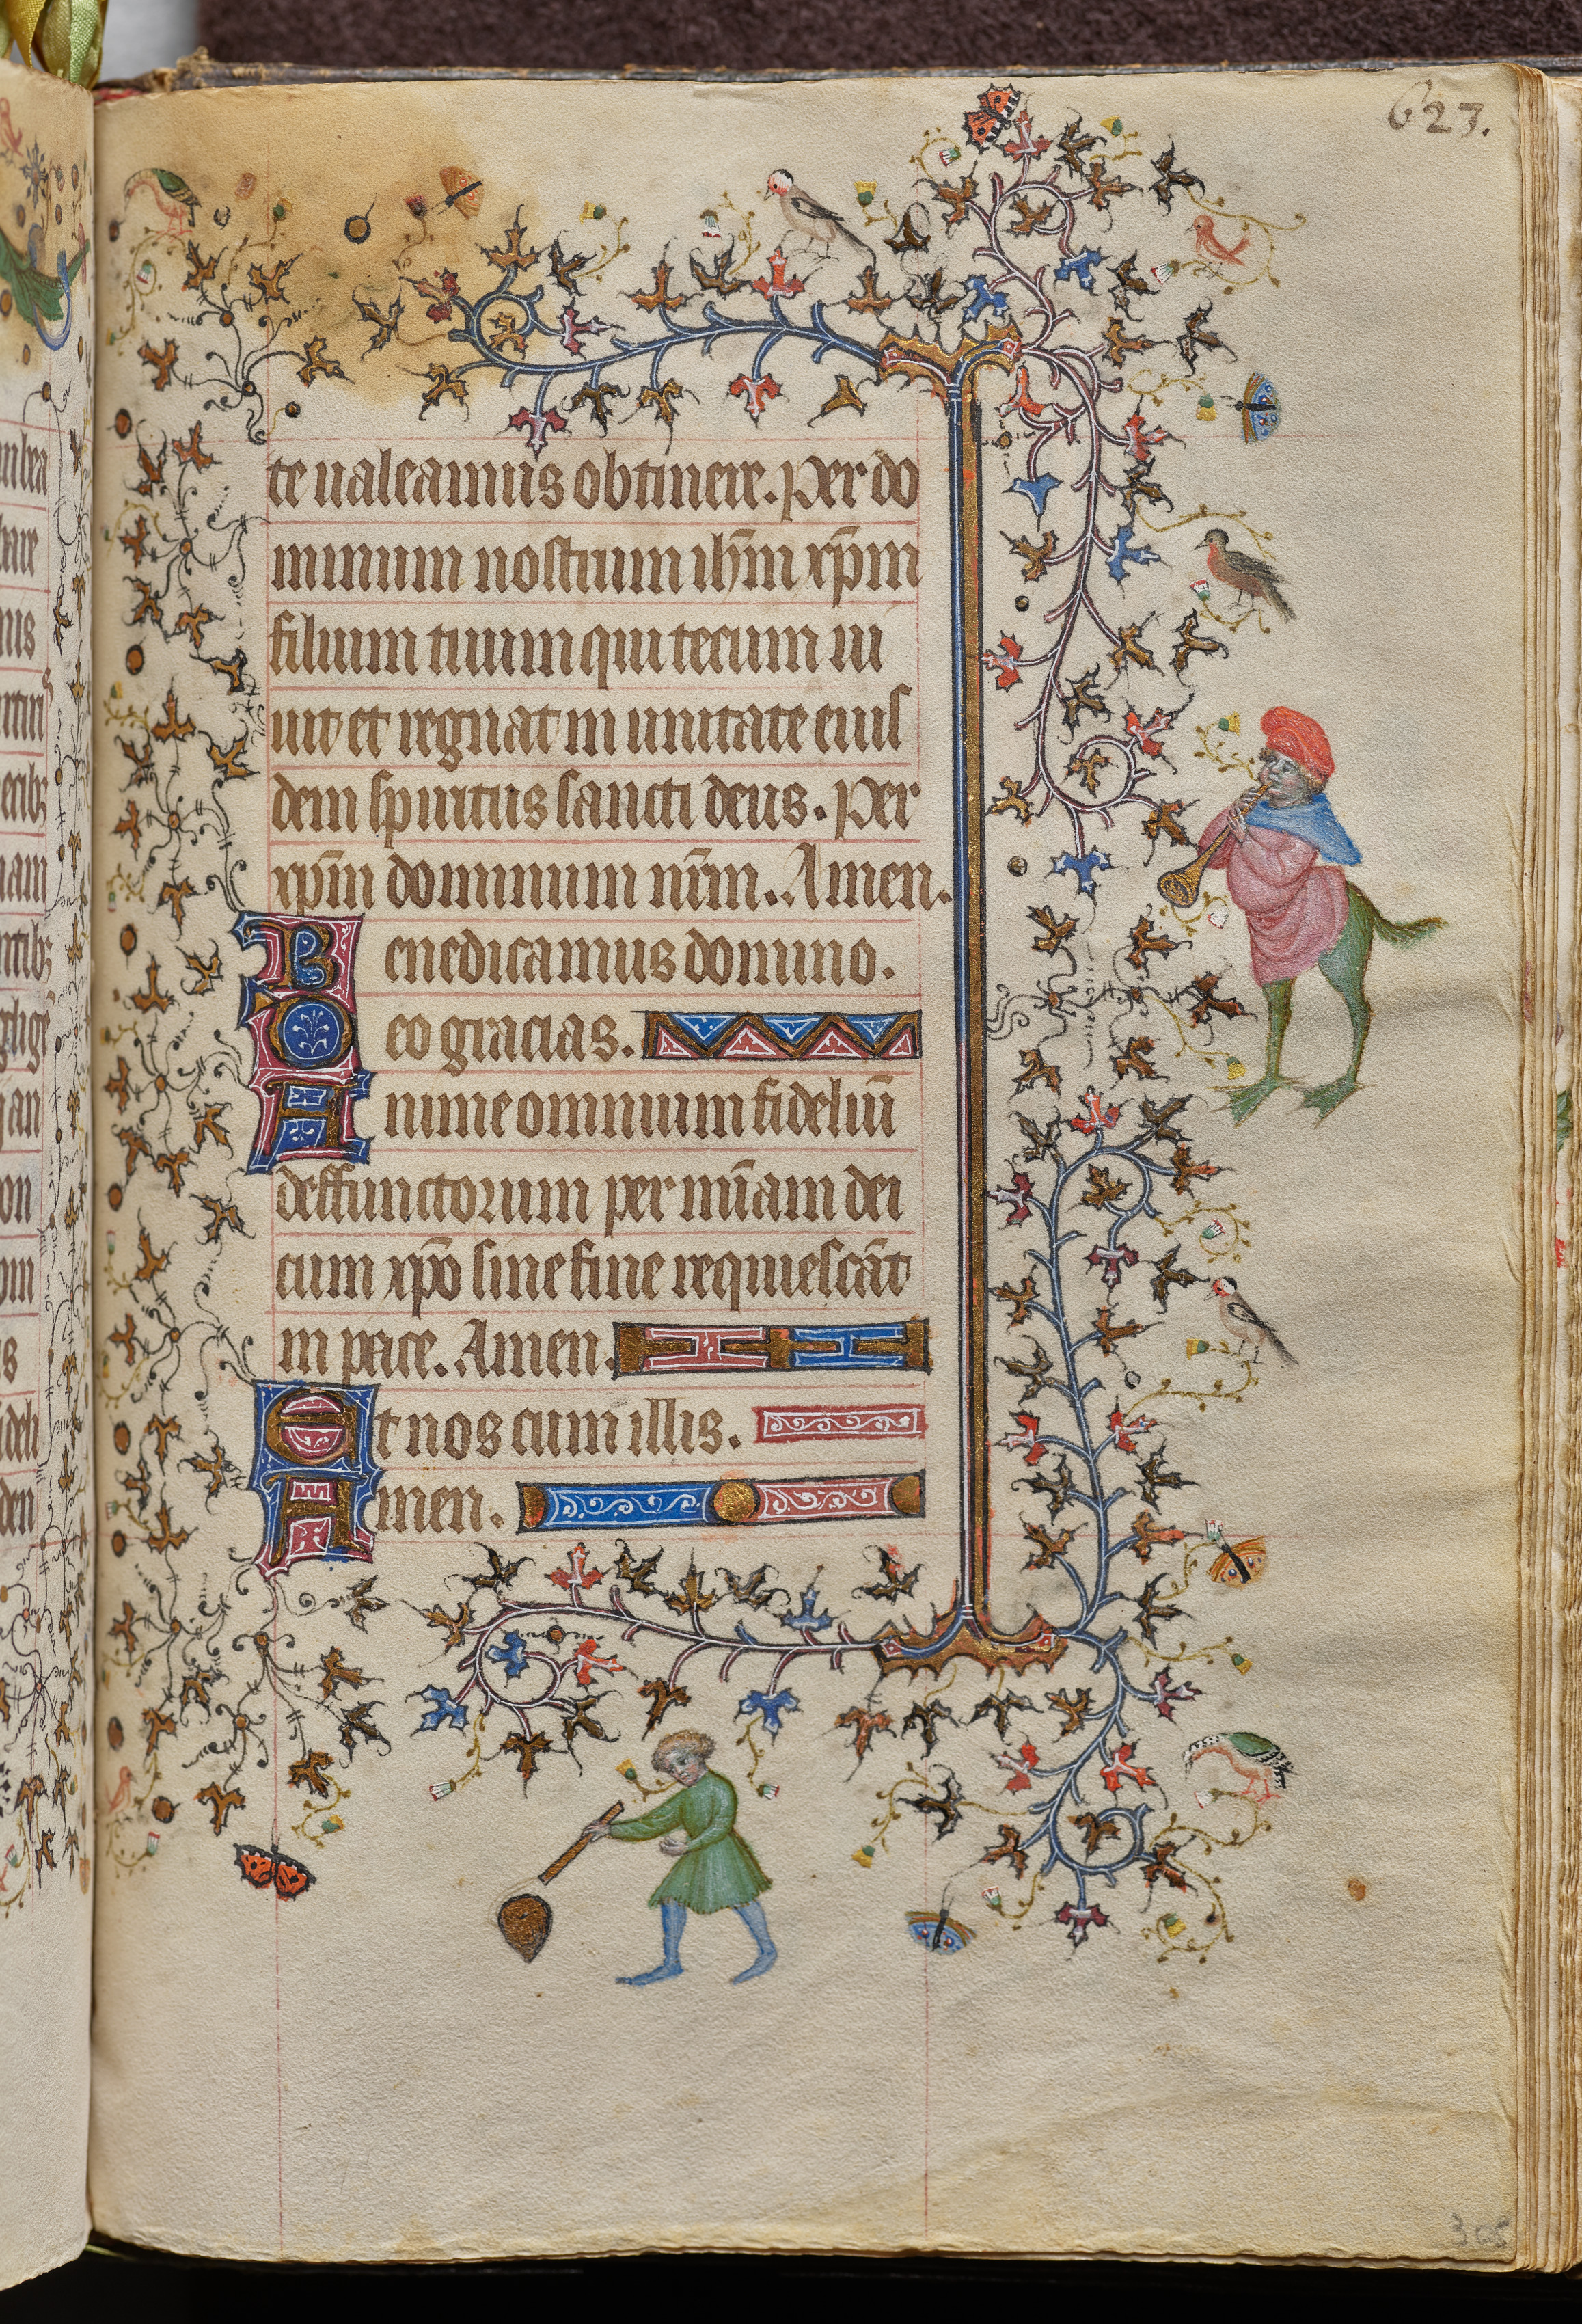 623.
te ualeamus obtinere. Per do
minum nostrum ihm̄ xp̄m
filium tuum qui tecum ui
uit et regnat in unitate eius
dem spiritus sancti deus. Per
xp̄m dominum nr̄m. Amen.
Benedicamus domino.
Deo gracias.
Anime omnium fideliū
deffunctorum per mīam dei
cum xp̄o sine fine requiescāt
in pace. Amen.
Et nos cum illis.
Amen.
305